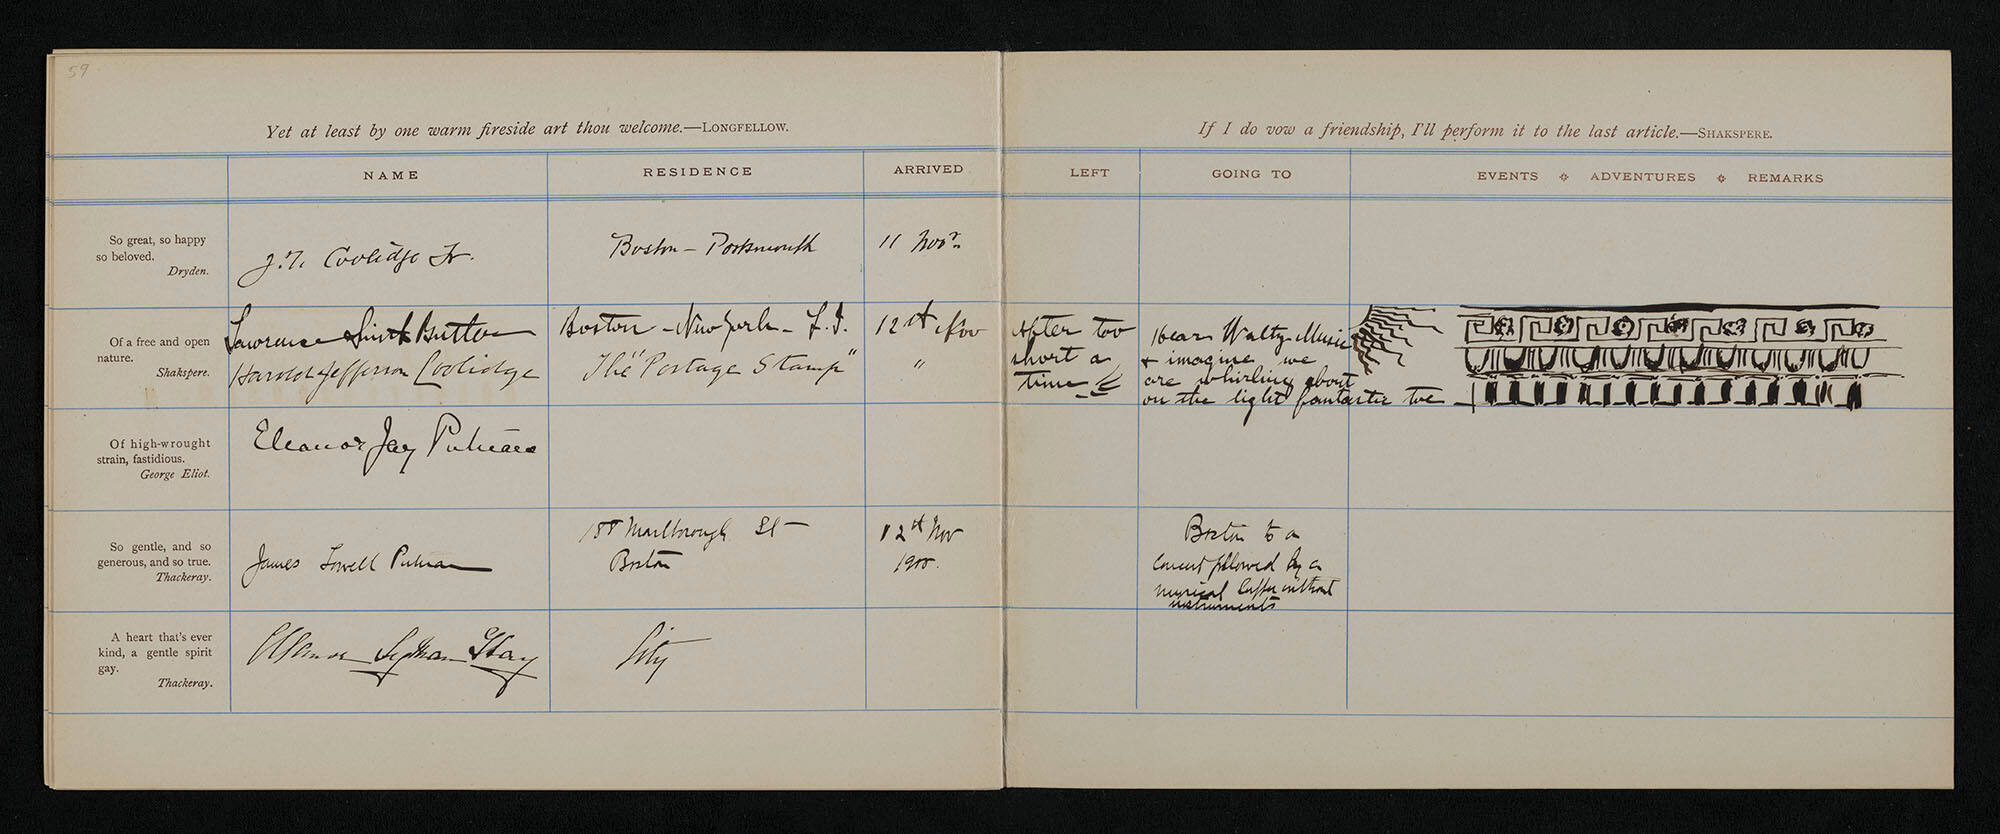 59
Yet at least by one warm fireside art thou welcome.—LONGFELLOW.
NAME RESIDENCE ARRIVED
So great, so happy
so beloved.
Dryden.
J. T. Coolidge Jr. Boston – Portsmouth 11 Novr.
Of a free and open
nature.
Shakspere.
Lawrence Smith Butler Boston – New York – L.I. 12th Nov
Harold Jefferson Coolidge The "Postage Stamp" "
Of high-wrought
strain, fastidious.
George Eliot.
Eleanor Jay
So gentle, and so
generous, and so true.
Thackeray.
James Lowell Putnam
Marlborough St
Boston
12th Nov
1900.
A heart that's ever
kind, a gentle spirit
gay.
Thackeray.
City
If I do vow a friendship, I'll perform it to the last article.—SHAKSPERE.
LEFT GOING TO EVENTS ADVENTURES REMARKS
After too
short a
time
Hear Waltz Music
& imagine we
are whirling about
on the light fantastic toe
Boston to a
concert followed by a
musical supper without
instruments